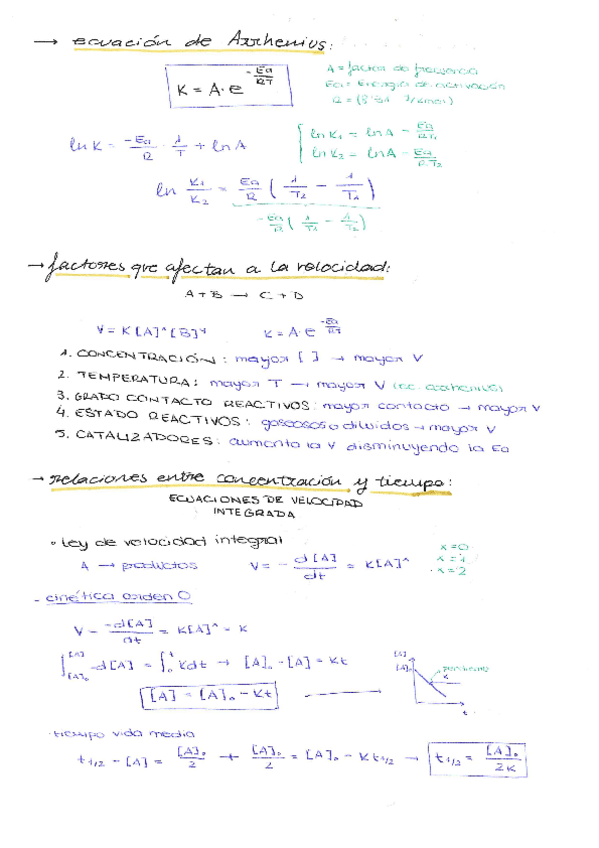 → ecuación de Arrhenius:
K = A·e^(-Ea/RT)
A = factor de frecuencia
Ea = Energía de activación
R = (8'31 J/k·mol)
ln K = -Ea/R · 1/T + ln A
ln K1 = ln A - Ea/RT1
ln K2 = ln A - Ea/RT2
ln K1/K2 = Ea/R (1/T2 - 1/T1)
-Ea/R (1/T1 - 1/T2)
→ factores que afectan a la velocidad:
A+B → C+D
V = K[A]^x[B]^y K = A·e^(-Ea/RT)
1. CONCENTRACIÓN: mayor [ ] → mayor V
2. TEMPERATURA: mayor T → mayor V (ec. arrhenius)
3. GRADO CONTACTO REACTIVOS: mayor contacto → mayor V
4. ESTADO REACTIVOS: gaseosos o diluidos → mayor V
5. CATALIZADORES: aumenta la V disminuyendo la Ea
→ relaciones entre concentración y tiempo:
ECUACIONES DE VELOCIDAD
INTEGRADA
• Ley de velocidad integral
A → productos V = - d[A]/dt = K[A]^x
x=0
x=1
x=2
- cinética orden 0
V = -d[A]/dt = K[A]^x = K
∫[A]₀^[A] -d[A] = ∫₀^t Kdt → [A]₀-[A] = Kt
[A] = [A]₀ - Kt
[A]
[A]₀
pendiente
K
t
· tiempo vida media
t1/2 - [A] = [A]₀/2 → [A]₀/2 = [A]₀ - K t1/2 → t1/2 = [A]₀/2K